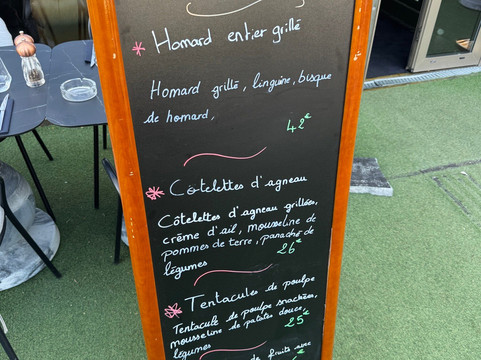 Homard entier grillé
Homard grillé, linguine, bisque
de homard,
42€
Côtelettes d'agneau
Côtelettes d'agneau grillées,
crème d'ail, mousseline de
pommes de terre, panaché de
légumes
26€
Tentacules de poulpe
Tentacule de poulpe snackées,
mousseline de patates douce,
légumes
25€
de fruits avec
€